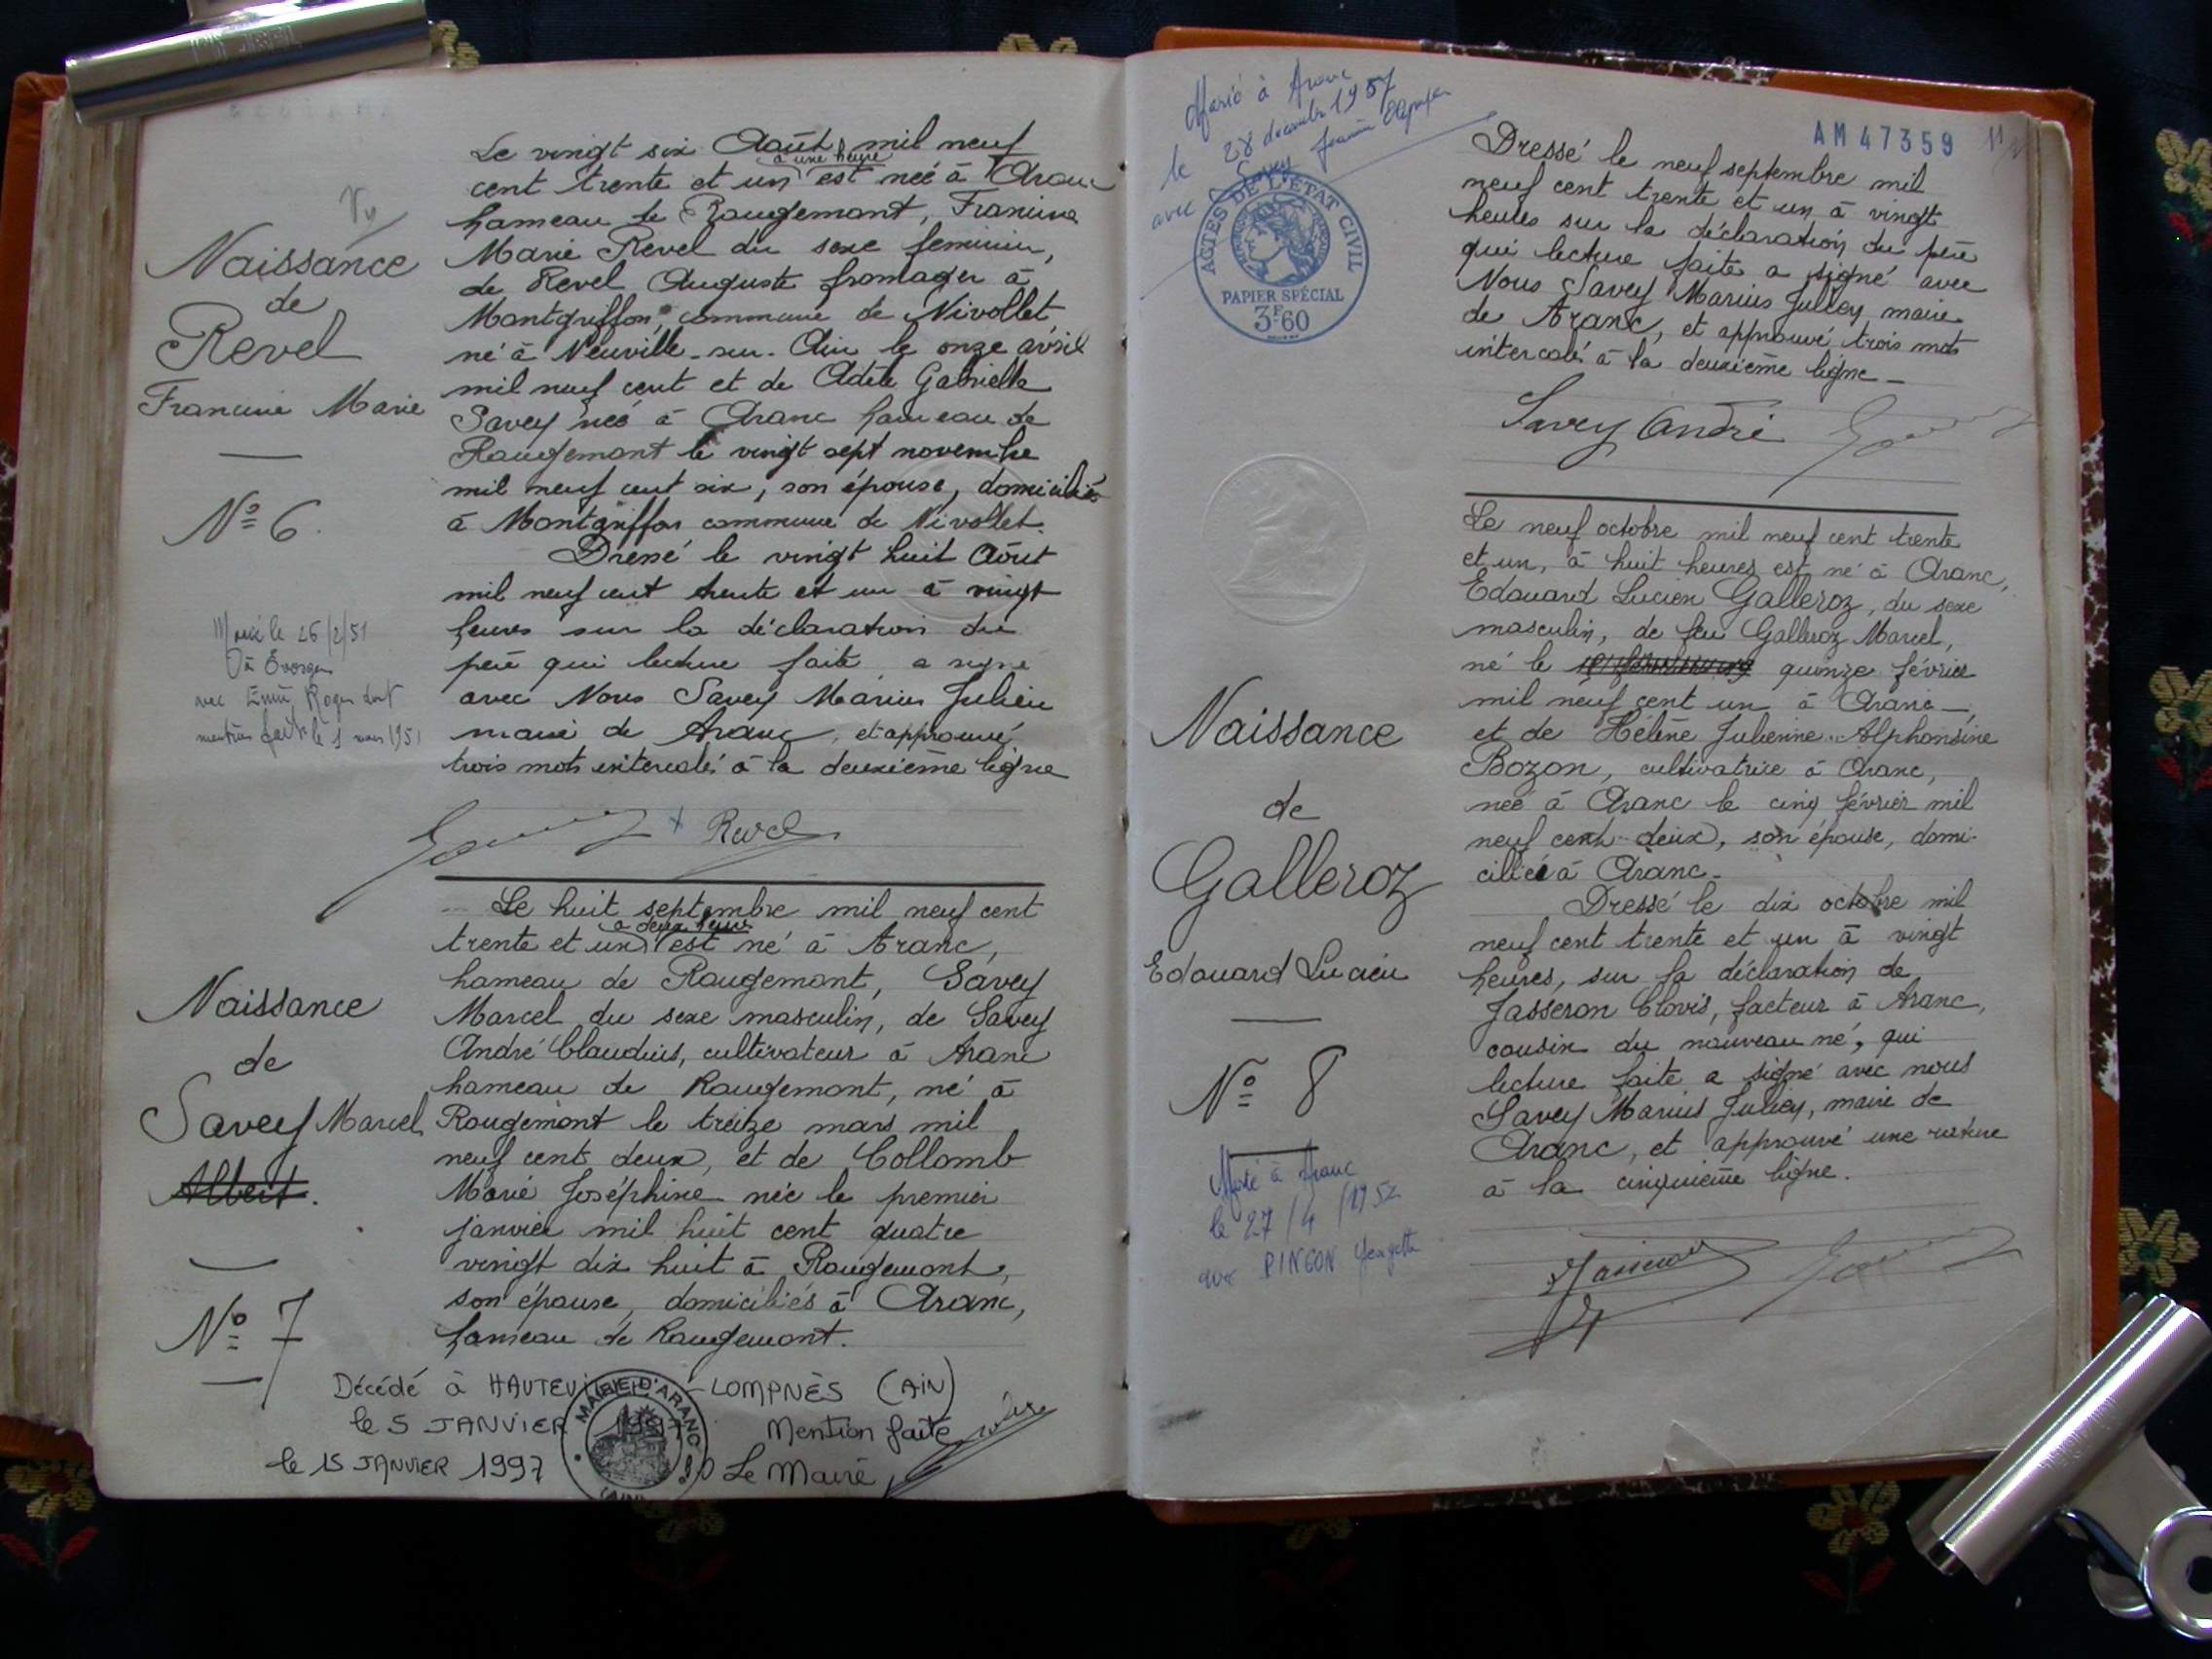 Vu
Naissance
de
Revel
Francine Marie
Nº 6.
Marié le 26/2/51
à Evosges
avec
mention faite le 1 mars 1951
Le vingt six Août mil neuf
à une heure
cent trente et un est née à Aranc
hameau de Rougemont, Francine
Marie Revel du sexe féminin,
de Revel Auguste fromager à
Montgriffon, commune de Nivollet
né à Neuville-sur-Ain le onze avril
mil neuf cent et de Adèle Gabrielle
Savey née à Aranc hameau de
Rougemont le vingt sept novembre
mil neuf cent six, son épouse, domiciliés
à Montgriffon commune de Nivollet.
Dressé le vingt huit Août
mil neuf cent trente et un à vingt
heures sur la déclaration du
père qui lecture faite a signé
avec Nous Savey Marius Julien
maire de Aranc, et approuvé
trois mots intercalés à la deuxième ligne
Revel
Naissance
de
Savey Marcel
Albert.
Nº 7
Le huit septembre mil neuf cent
à deux heures
trente et un est né à Aranc,
hameau de Rougemont, Savey
Marcel du sexe masculin, de Savey
André Claudius, cultivateur à Aranc
hameau de Rougemont, né à
Rougemont le treize mars mil
neuf cent deux, et de Collomb
Marie Joséphine née le premier
janvier mil huit cent quatre
vingt dix huit à Rougemont,
son épouse, domiciliés à Aranc,
hameau de Rougemont.
Décédé à HAUTEVILLE-LOMPNÈS (AIN)
le 5 JANVIER 1997 Mention faite
le 15 JANVIER 1997 Le Maire
MAIRIE D'ARANC
(AIN)
Marié à Aranc
le 28 décembre 1957
avec Savey
ACTES DE L'ÉTAT CIVIL
PAPIER SPÉCIAL
3F60
AM47359
Dressé le neuf septembre mil
neuf cent trente et un à vingt
heures sur la déclaration du père
qui lecture faite a signé avec
Nous Savey Marius Julien, maire
de Aranc, et approuvé trois mots
intercalés à la deuxième ligne_
Savey André
Naissance
de
Galleroz
Edouard Lucien
Nº 8
Marié à Aranc
le 27/4/1952
avec PINGON Georgette
Le neuf octobre mil neuf cent trente
et un, à huit heures est né à Aranc,
Edouard Lucien Galleroz, du sexe
masculin, de feu Galleroz Marcel,
né le quinze février
mil neuf cent un à Aranc_,
et de Hélène Julienne Alphonsine
Bozon, cultivatrice à Aranc,
née à Aranc le cinq février mil
neuf cent deux, son épouse, domi-
ciliée à Aranc_
Dressé le dix octobre mil
neuf cent trente et un à vingt
heures, sur la déclaration de
Jasseron Clovis, facteur à Aranc,
cousin du nouveau né, qui
lecture faite a signé avec nous
Savey Marius Julien, maire de
Aranc, et approuvé une rature
à la cinquième ligne.